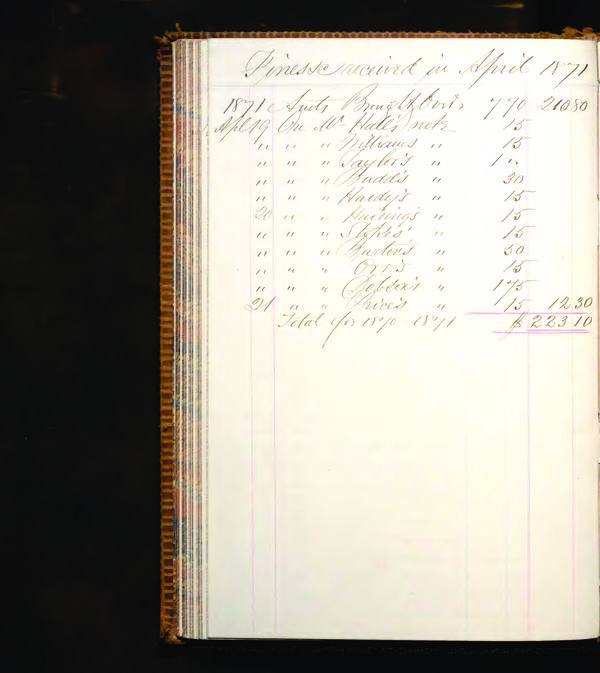 Fines &c received in April 1871
1871 Amts Brought Over 7 70 210 80
Apl 19 On Mr Hall's note 15
" " " Williams " 15
" " " Taylor's " 1 "
" " " Budd's " 30
" " " Hardy's " 15
20 " " Hairing's " 15
" " " Stokes' " 15
" " " Burton's " 50
" " " Orr's " 15
" " " Dobson's " 1 75
21 " " Price's " 15 12 30
Total for 1870 1871 $ 223 10